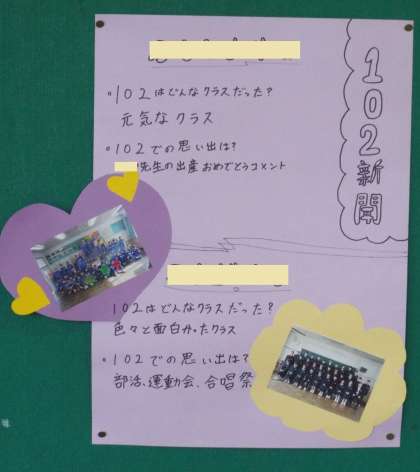 102新聞
・102はどんなクラスだった?
元気なクラス
・102での思い出は?
先生の出産おめでとうコメント
102はどんなクラスだった?
色々と面白かったクラス
・102での思い出は?
部活、運動会、合唱祭